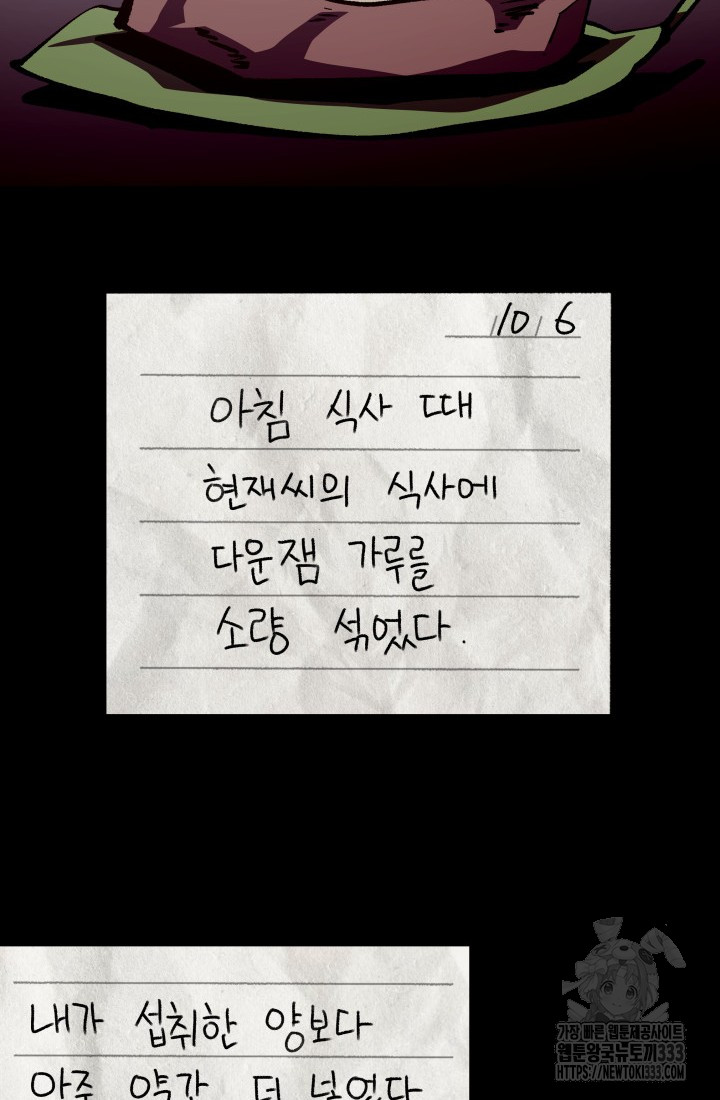 10/6
아침 식사 때
현재씨의 식사에
다운잼 가루를
소량 섞었다.
내가 섭취한 양보다
아주 약간 더 넣었다
가장 빠른 웹툰제공사이트
웹툰왕국뉴토끼333
HTTPS://NEWTOKI333.COM